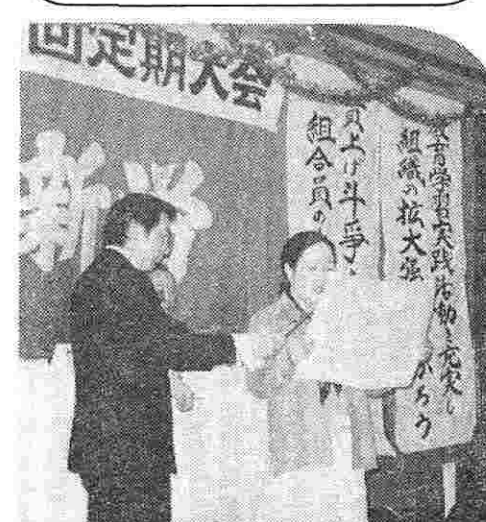 回定期大会
教育学習実践活動を充実し
組織の拡大強
かろう
買上げ斗争
組合員の